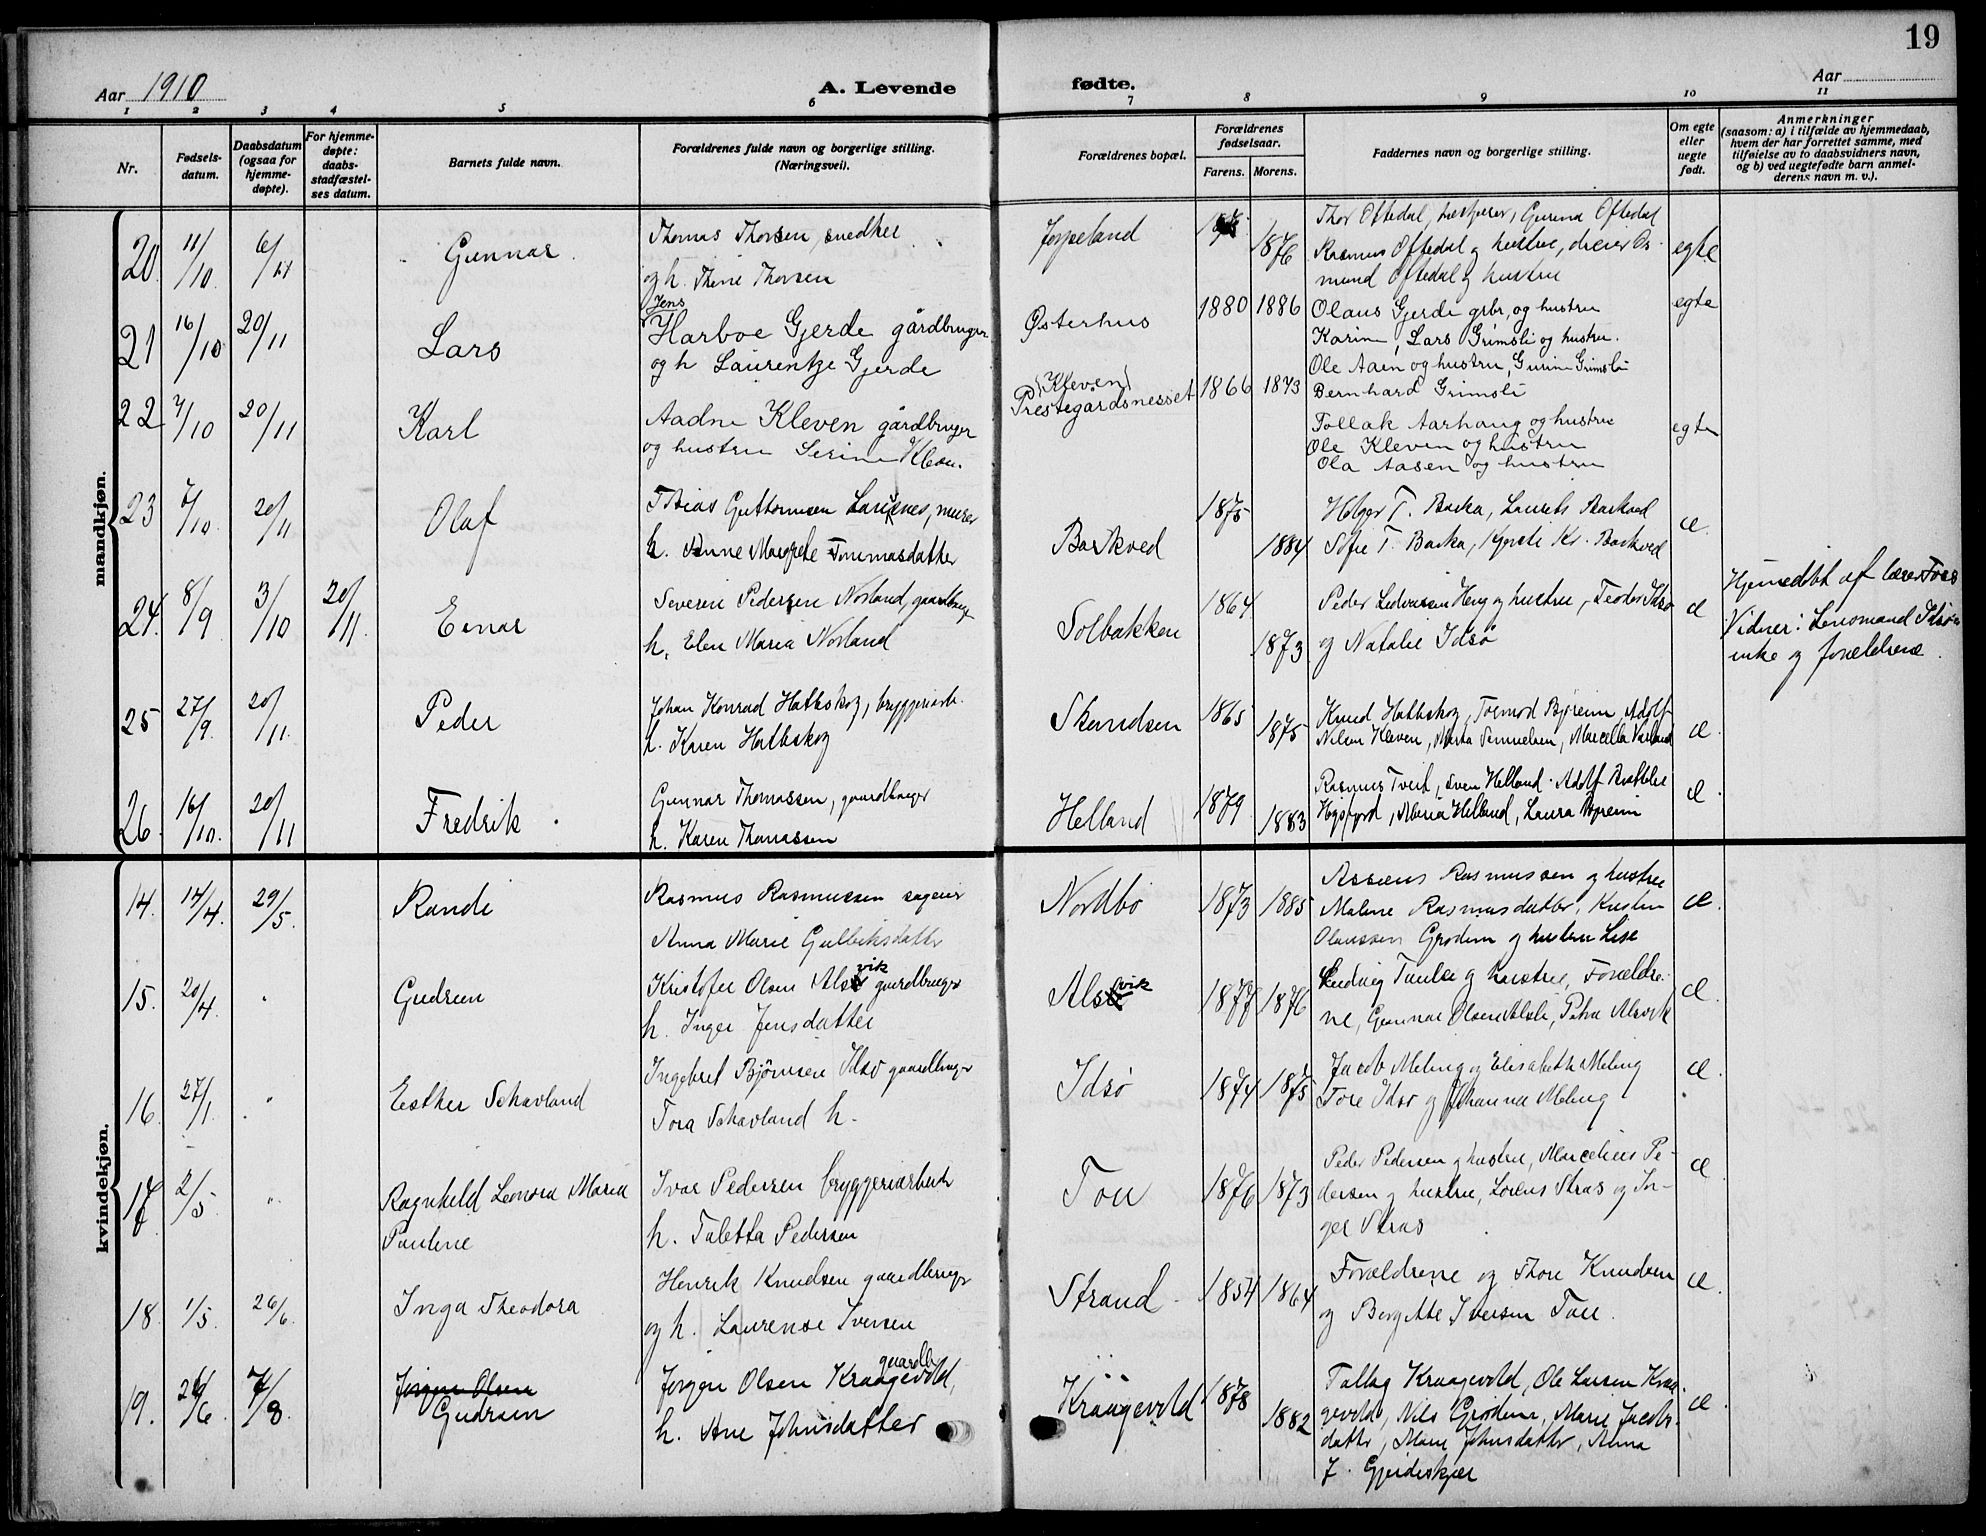 19
Aar 1910
A. Levende
fødte.
Aar
1 2 3 4 5 6 7 8 9 10 11
Nr.
Fødsels-
datum.
Daabsdatum
(ogsaa for
hjemme-
døpte).
For hjemme-
døpte:
daabs-
stadfæstel-
ses datum.
Barnets fulde navn.
Forældrenes fulde navn og borgerlige stilling.
(Næringsvei).
Forældrenes bopæl.
Forældrenes
fødselsaar.
Farens. Morens.
Faddernes navn og borgerlige stilling.
Om egte
eller
uegte
født.
Anmerkninger
(saasom: a) i tilfælde av hjemmedaab,
hvem der har forrettet samme, med
tilføielse av to daabsvidners navn,
og b) ved uegtefødte barn anmel-
derens navn m. v.).
mandkjøn.
20 11/10 6/11 Gunnar
Thomas Thorsen, snedker
og h. Thine Thorsen
Jørpeland 1876
Thor Oftedal, Gurina Oftedal
Rasmus Oftedal og hustru, dreier Os-
mund Oftedal og hustru
egte
21 16/10 20/11 Lars
Jens
Harboe Gjerde gårdbruger
og h Laurentze Gjerde
Østerhus 1880 1886
Olaus Gjerde grbr, og hustru
Karine, Lars Grimsli og hustru.
Ole Aaen og hustru, Gurine Grimsli
Bernhard Grimsli
egte
22 7/10 20/11 Karl
Aadne Kleven gårdbruger
og hustru Serine Kleven.
(Kleven)
Prestegårdsnesset 1866 1873
Follak Aarhaug og hustru
Ole Kleven og hustru
Ola Aasen og hustru
egte
23 7/10 20/11 Olaf
Tobias Guttormsen murer
h. Anne Margrete Tommasdatter
Barkved 1875 1884
Helger T. Barka, Laurits Barkved
Sofie T. Barka, Kjersti Kr. Barkved
æ
24. 8/9 3/10 20/11. Einar
Severin Pedersen Norland, gaardbrug
h. Elen Maria Norland
Solbakken 1864 1873
Peder Heng og hustru, Teodor Idsø
og Natalie Idsø
æ
Hjemedøbt af lærer Foss
Vidner: Lensmand Idsøs
enke og forældrene.
25 27/9 20/11. Peder
Johan Konrad Hatleskog, bryggeriarb.
h. Karen Hatleskog
1865 1875
Knud Hatleskog, Tormod Bjørheim, Adolf
Nilsen Kleven, Marta Samuelsen, Marcella
æ.
26. 16/10. 20/11 Fredrik.
Gunnar Thomassen, gaardbruger
h. Karen Thomassen
Helland 1879 1883
Rasmus Tveit, Sven Helland. Adolf
Høgsfjord, Maria Helland, Laura Bjøreim
æ.
kvindekjøn.
14. 14/4. 29/5. Randi
Rasmus Rasmussen sageier
Anna Marie Gulleiksdatter
Nordbø 1873 1885
Assceus Rasmussen og hustru
Malene Rasmusdatter, Kristen
Olaussen Grødem og hustru Lise
æ.
15. 20/4. " Gudrun
Kristofer Olsen Alsvik gaardbruger
h. Inger Jensdatter
Alsvik 1877 1876
Ludvig Taule og hustru, Forældre-
ne, Gunnar Olsen Alsli, Petra Alsvik
æ.
16. 27/1. " Esther Schavland
Ingebret Bjørnsen Idsø gaardbruger
Tora Schavland h.
Idsø 1874 1875
Jacob Meling og Elisabeth Meling
Tore Idsø og Johanna Meling
æ.
17 2/5 " Ragnhild Leonora Maria
Pauline
Ivar Pedersen bryggeriarbeider
h. Taletta Pedersen
Tou 1876 1873
Peder Pedersen og hustru, Marcelius Pe-
dersen og hustru, Lorens Straas og In-
ger Straas
æ.
18. 1/5. 26/6. Inga Theodora
Henrik Knudsen gaardbruger
og h. Laurense Iversen
Strand. 1854 1864
Forældrene og Thore Knudsen
og Bergitte Iversen Tou.
æ.
19. 26/6. 7/8. Jørgen Olsen
Gudrun
gaardb
Jørgen Olsen Kraagevold,
h. Ane Johnsdatter
Kraagevold 1878 1882
Tallag Kraagevold, Ole Larsen Kraa-
gevold, Nils Grødem, Marie Jacobs-
datter, Mari Johnsdatter, Anna
J. Gjerdeskjær
æ.